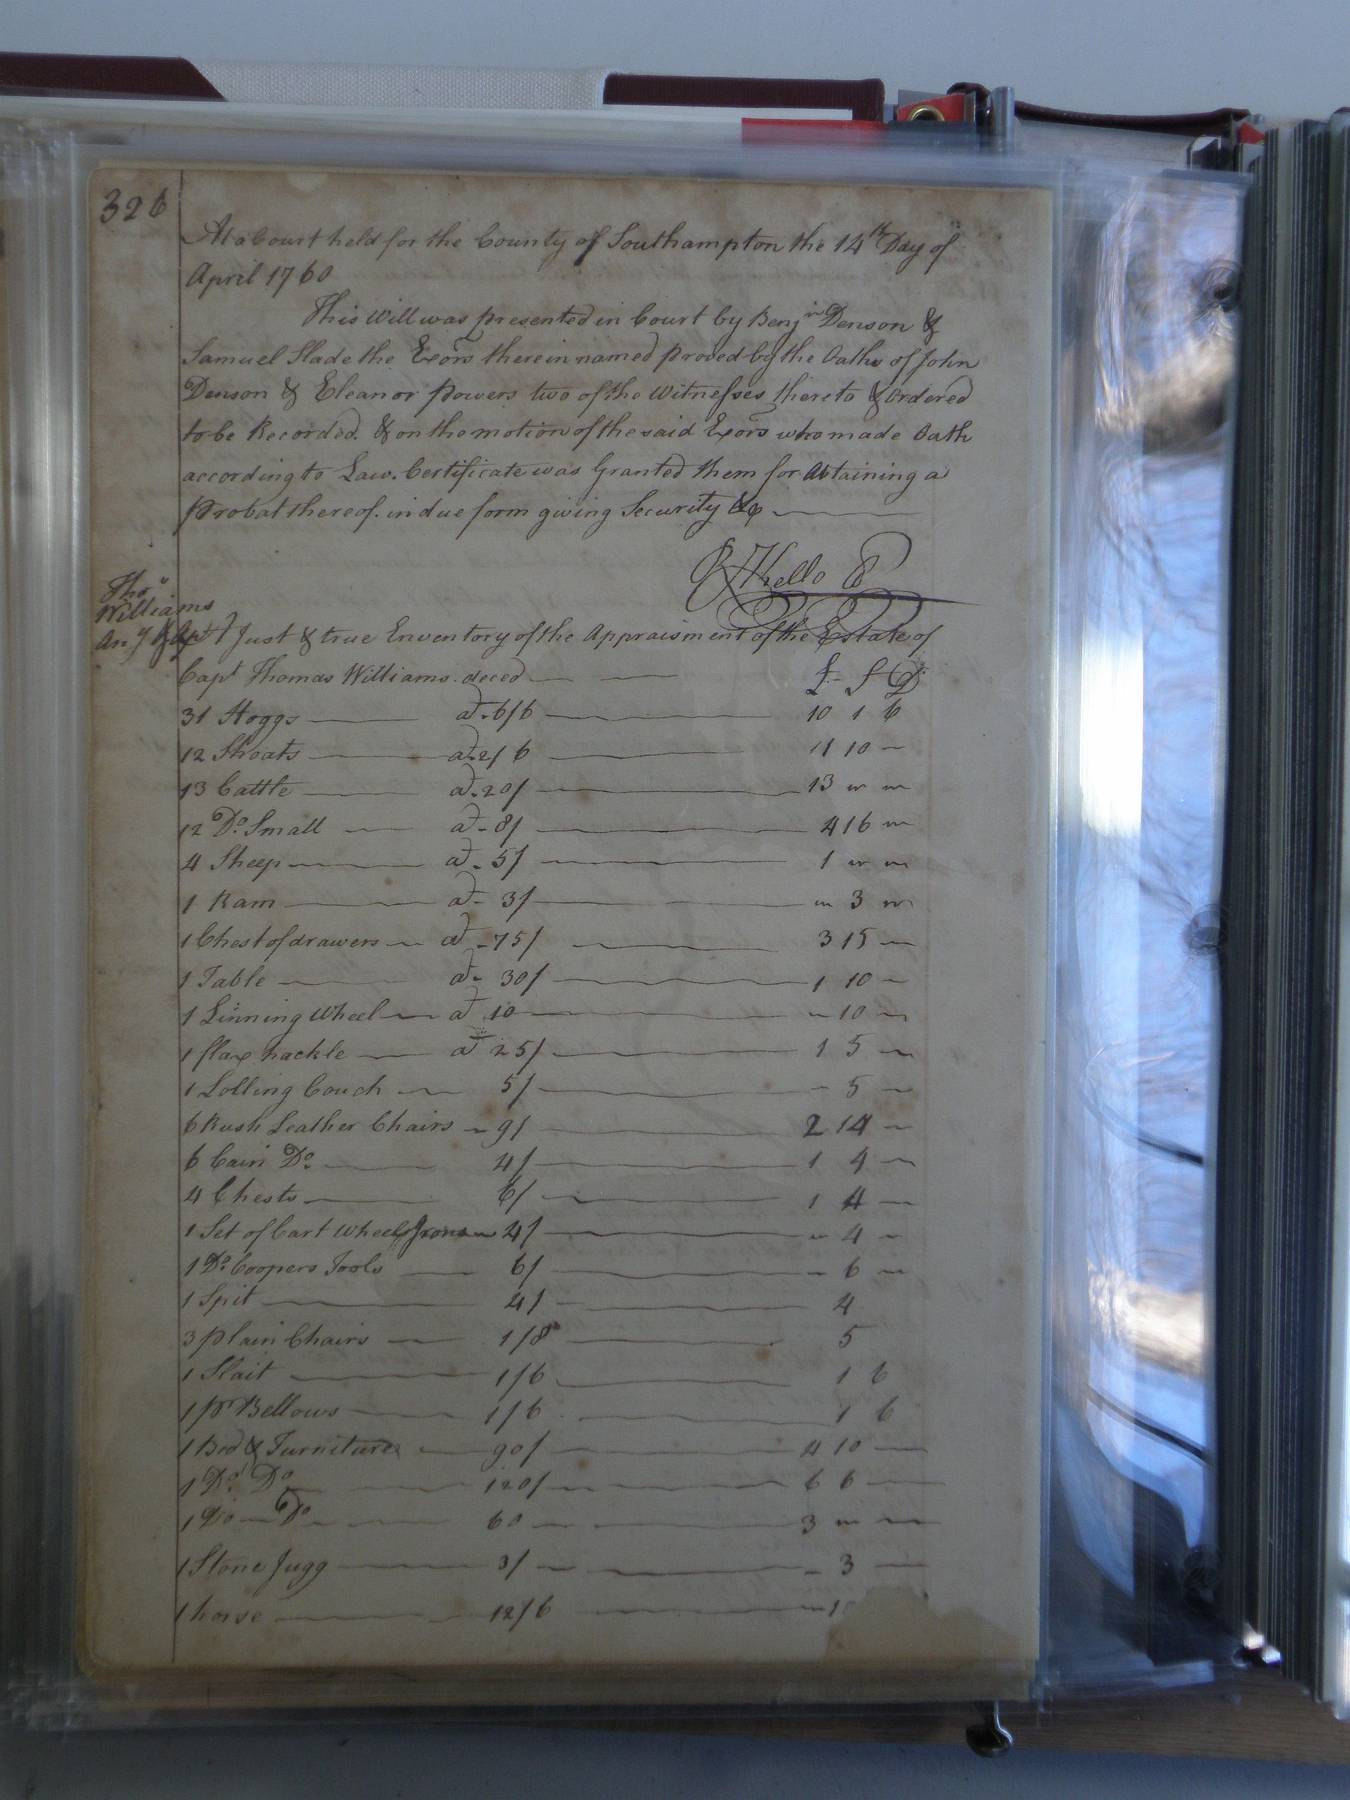 326
At a Court held for the County of Southampton the 14th Day of
April 1760
This Will was presented in Court by Benjin Denson &
Samuel Slade the Exors therein named proved by the Oaths of John
Denson & Eleanor Powers two of the Witnesses thereto & Ordered
to be Recorded. & on the motion of the said Exors who made Oath
according to Law. Certificate was Granted them for Abtaining a
Probat thereof. in due form giving Security &c
Thos
Williams
A Just & true Enventory of the Appraisment of the Estate of
Capt Thomas Williams. deced £ S D
31 Hoggs at 6/6 10 1 6
12 Shoats at 2/6 1 10
13 Cattle at 20/ 13 " "
12 Do Small at 8/ 4 16 "
4 Sheep at 5/ 1 " "
1 Ram at 3/ " 3 "
1 Chest of drawers at 75/ 3 15
1 Table at 30/ 1 10
1 Linning Wheel at 10 10
1 flax hackle at 25/ 1 5
1 Lolling Couch 5/ 5
6 Rush Leather Chairs 9/ 2 14
6 Cain Do 4/ 1 4
4 Chests 6/ 1 4
1 Set of Cart Wheels Irons 4/ 4
1 Do Coopers Tools 6/ 6
1 Spit 4/ 4
3 plain Chairs 1/8 5
1 Slait 1/6 1 6
1 pr Bellows 1/6 1 6
1 Bed & Furniture 90/ 4 10
1 Do Do 120/ 6 6
1 Do Do 60 3 " "
1 Stone Jugg 3/ 3
1 horse 12/6